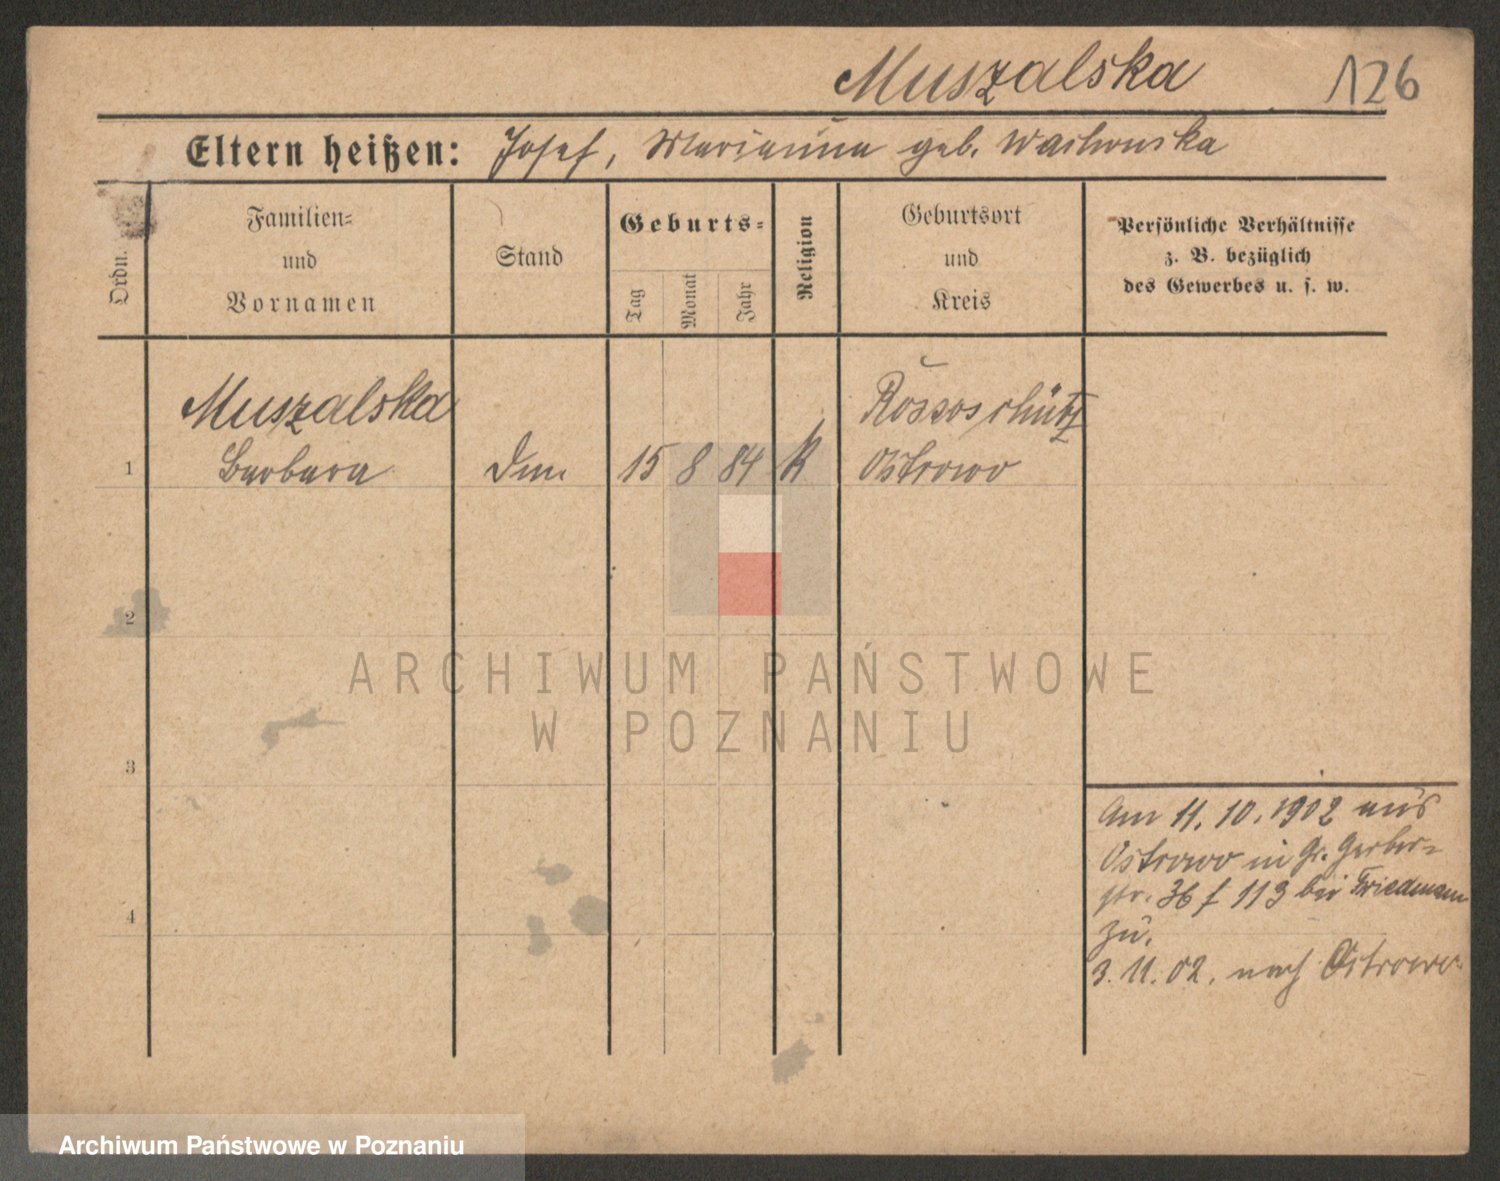 Muszalska 126
Eltern heißen: Josef, Marianna geb. Wachowska
Ordn.
Familien=
und
Vornamen
Stand
Geburts=
Tag
Monat
Jahr
Religion
Geburtsort
und
Kreis
Persönliche Verhältnisse
z. B. bezüglich
des Gewerbes u. s. w.
Muszalska
Rossoschütz
1 Barbara 15 8 84 K Ostrowo
2
3
4
Am 11. 10. 1902 aus
Ostrowo in Gr. Gerber=
str. 36 f 113 bei Friedmann
zu.
3. 11. 02. nach Ostrowo
ARCHIWUM PAŃSTWOWE
W POZNANIU
Archiwum Państwowe w Poznaniu